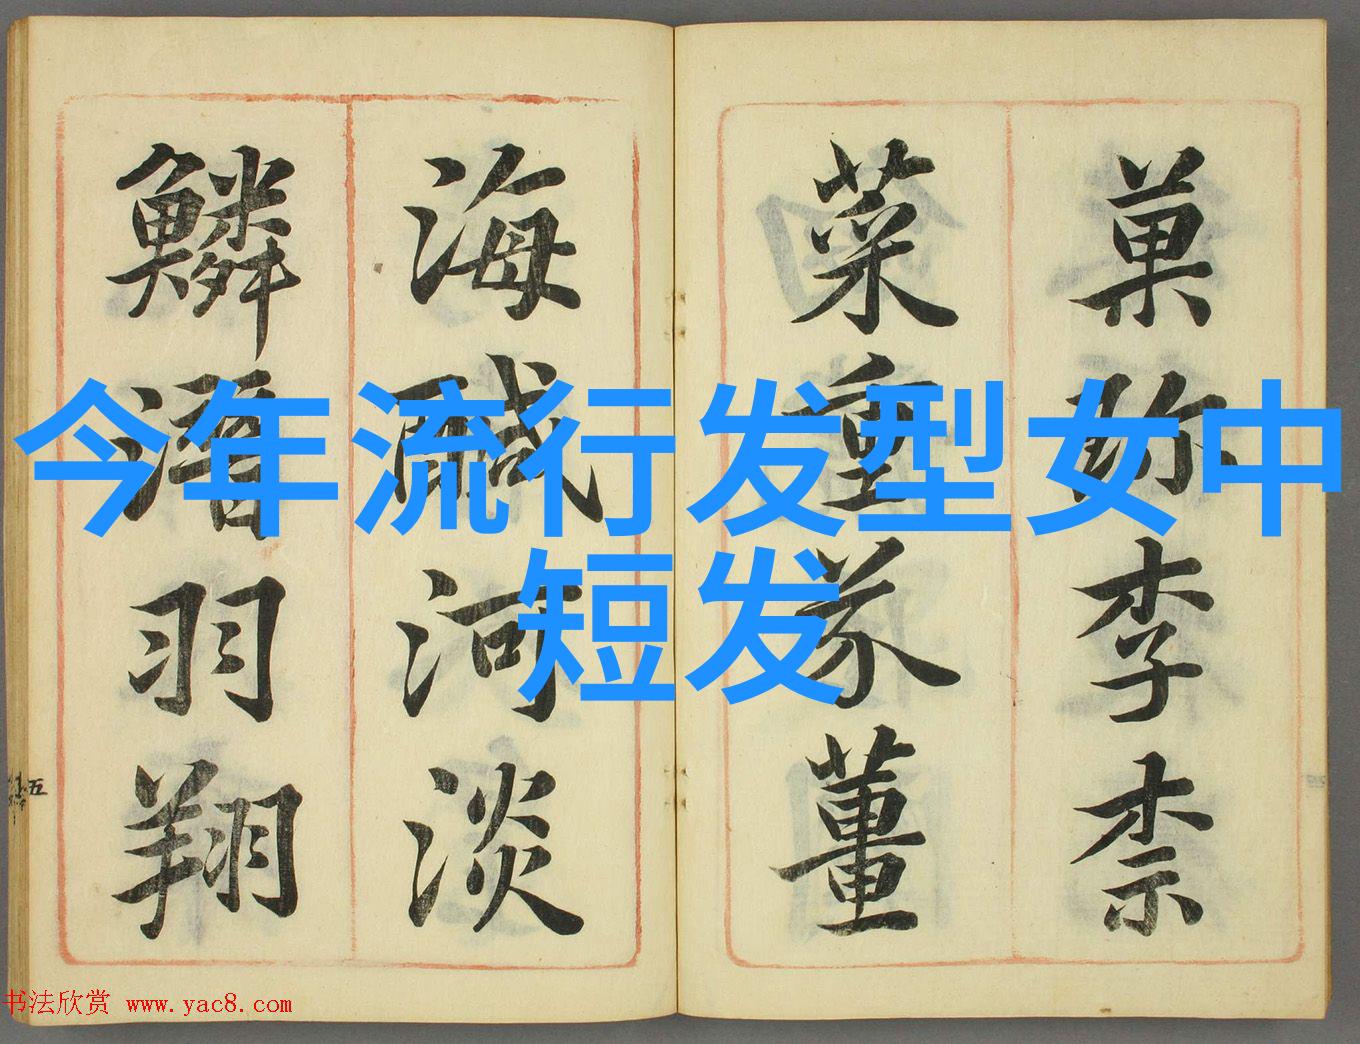 今年流行发型女中
短发
菓珎李柰
菜重芥薑
海鹹河淡
鱗潛羽翔
五
书法欣赏 www.yac8.com